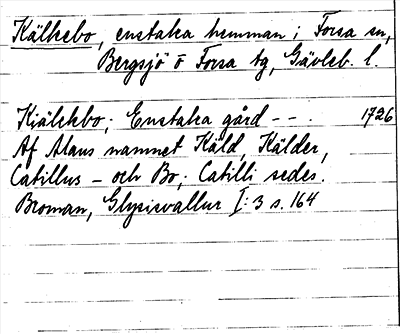 Källebo, enstaka hemman i Forsa sn,
Bergsjö o Forsa tg, Gävleb. l.
Kiälebo; Enstaka gård - - . 1726
Af Mans namnet Käld, Kälder,
Catillus - och Bo; Catilli sedes.
Broman, Glysisvallur I: 3 s. 164